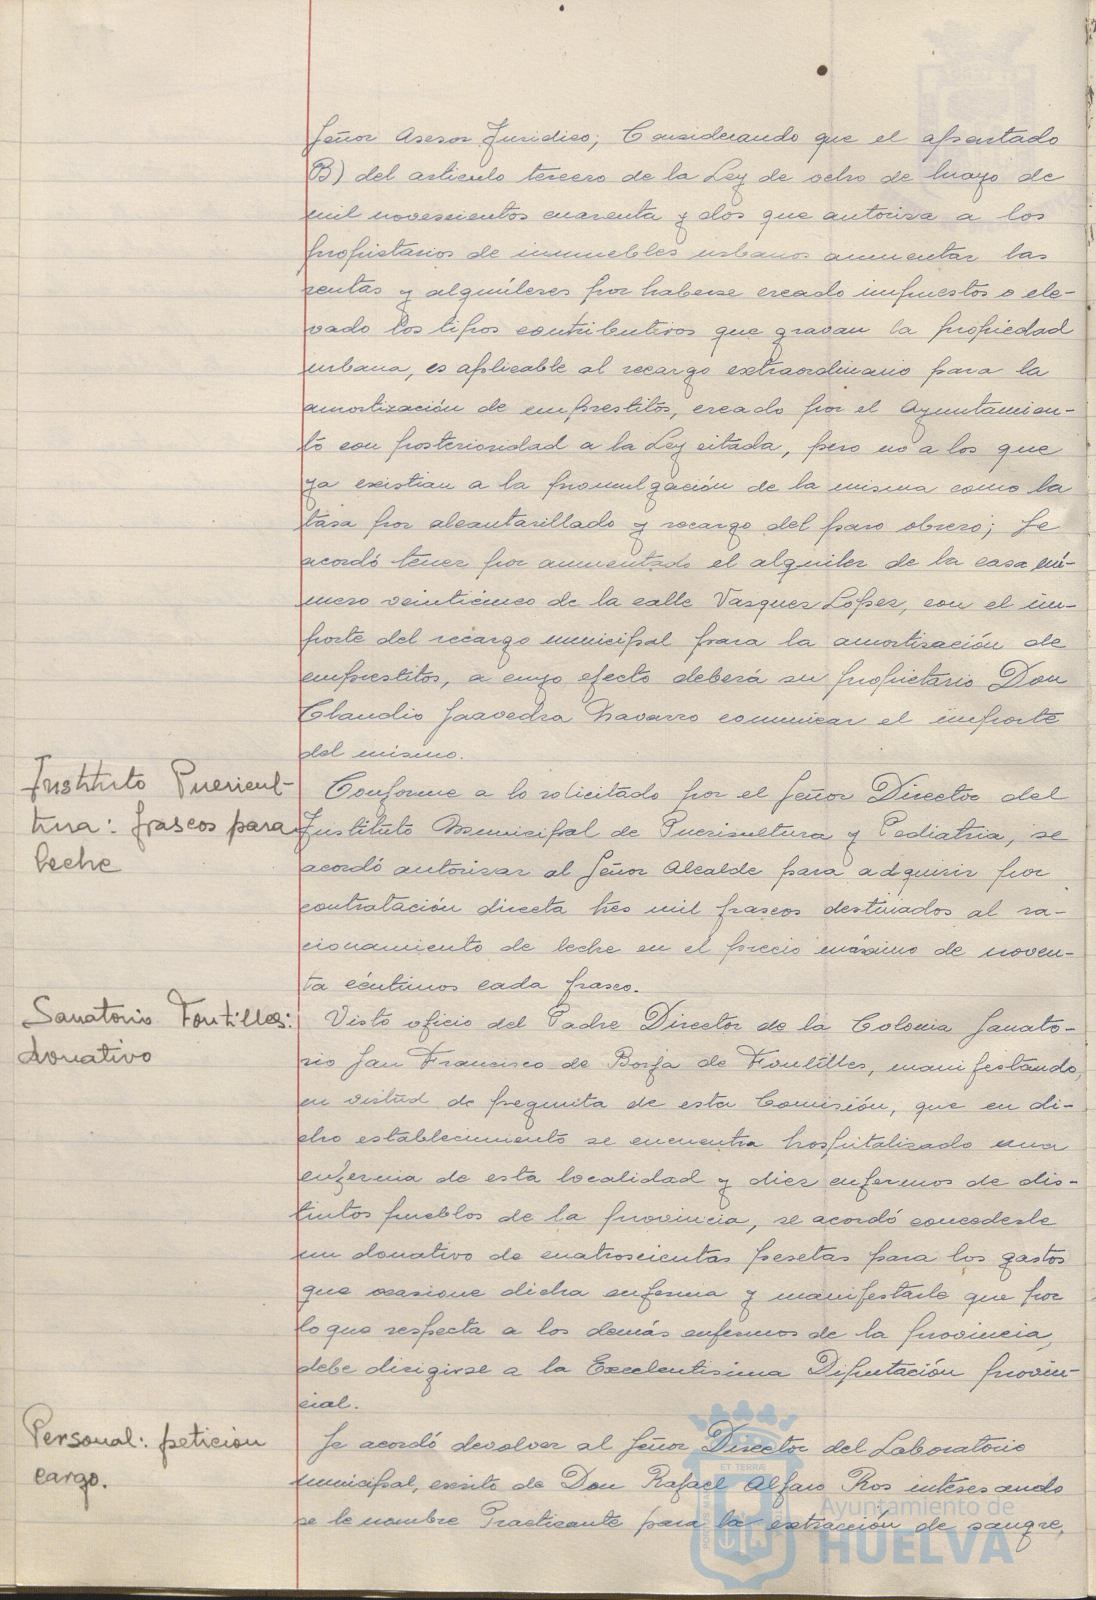 Señor Asesor Juridico; Considerando que el apartado
B) del articulo tercero de la Ley de ocho de Mayo de
mil novescientos cuarenta y dos que autoriza a los
propietarios de inmuebles urbanos aumentar las
rentas y alquileres por haberse creado impuestos o ele-
vado los tipos contributivos que gravan la propiedad
urbana, es aplicable al recargo extraordinario para la
amortización de emprestitos, creado por el Ayuntamien-
to con posterioridad a la Ley citada, pero no a los que
ya existian a la promulgación de la misma como la
tasa por alcantarillado y recargo del paro obrero; Se
acordó tener por aumentado el alquiler de la casa nú-
mero veinticinco de la calle Vazquez Lopez, con el im-
porte del recargo municipal para la amortización de
emprestitos, a cuyo efecto deberá su propietario Don
Claudio Saavedra Navarro comunicar el importe
del mismo.
Instituto Puericul-
tura: frascos para
leche
Conforme a lo solicitado por el Señor Director del
Instituto Municipal de Puericultura y Pediatria, se
acordó autorizar al Señor Alcalde para adquirir por
contratación directa tres mil frascos destinados al ra-
cionamiento de leche en el precio máximo de noven-
ta céntimos cada frasco.
Sanatorio Fontilles:
donativo
Visto oficio del Padre Director de la Colonia Sanato-
rio San Francisco de Borja de Fontilles, manifestando,
en virtud de pregunta de esta Comisión, que en di-
cho establecimiento se encuentra hospitalizado una
enferma de esta localidad y diez enfermos de dis-
tintos pueblos de la provincia, se acordó concederle
un donativo de cuatroscientas pesetas para los gastos
que ocasione dicha enferma y manifestarle que por
lo que respecta a los demás enfermos de la provincia,
debe dirigirse a la Excelentisima Diputación provin-
cial.
Personal: petición
cargo.
Se acordó devolver al Señor Director del Laboratorio
municipal, escrito de Don Rafael Alfaro Ros interesando
se le nombre Practicante para la extracción de sangre,
Ayuntamiento de
HUELVA